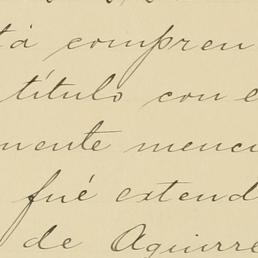 tá compren
título con e
mente menci
fué extend
de Aguirre